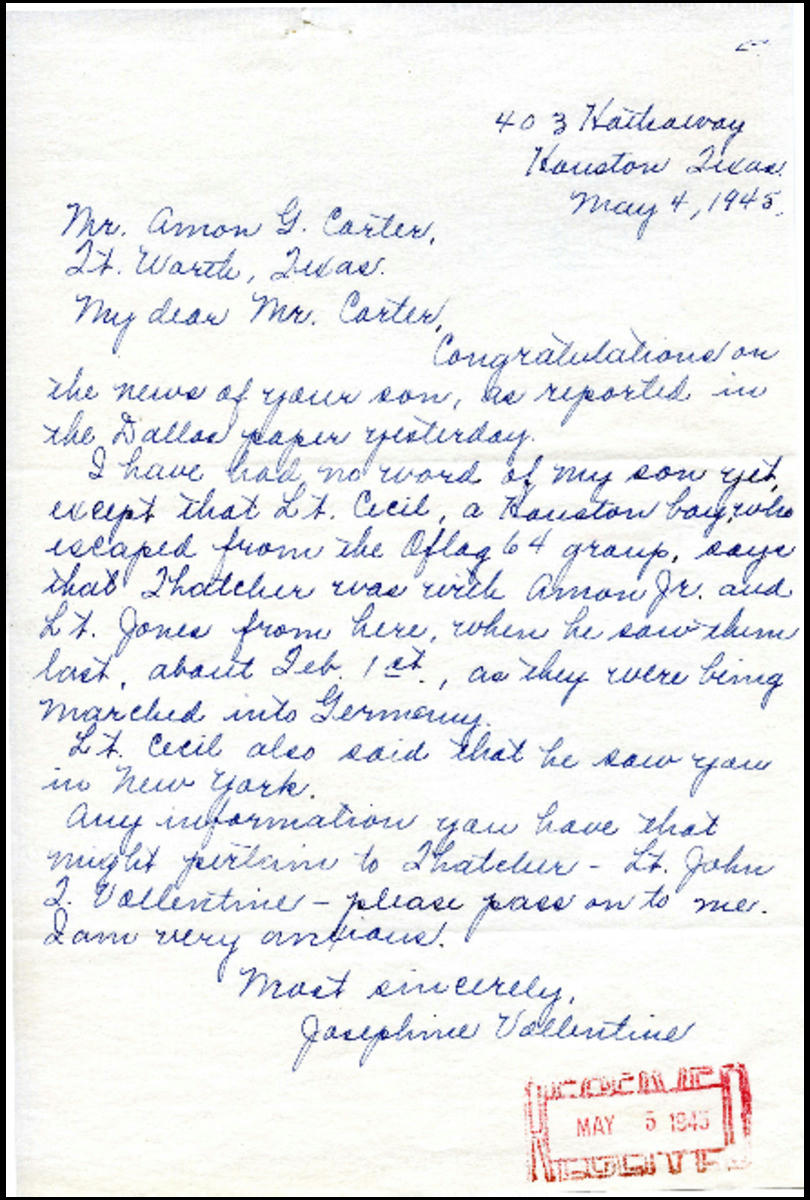 403 Hathaway
Houston Texas.
May 4, 1945.
Mr. Amon G. Carter,
Ft. Worth, Texas.
My dear Mr. Carter,
Congratulations on
the news of your son, as reported in
the Dallas paper yesterday.
I have had no word of my son yet,
except that Lt. Cecil, a Houston boy, who
escaped from the Oflag 64 group, says
that Thatcher was with Amon Jr. and
Lt. Jones from here, when he saw them
last, about Feb. 1st., as they were being
marched into Germany.
Lt. Cecil also said that he saw you
in New York.
Any information you have that
might pertain to Thatcher - Lt. John
T. Vallentine - please pass on to me.
I am very anxious.
Most sincerely,
Josephine Vallentine
MAY 5 1945